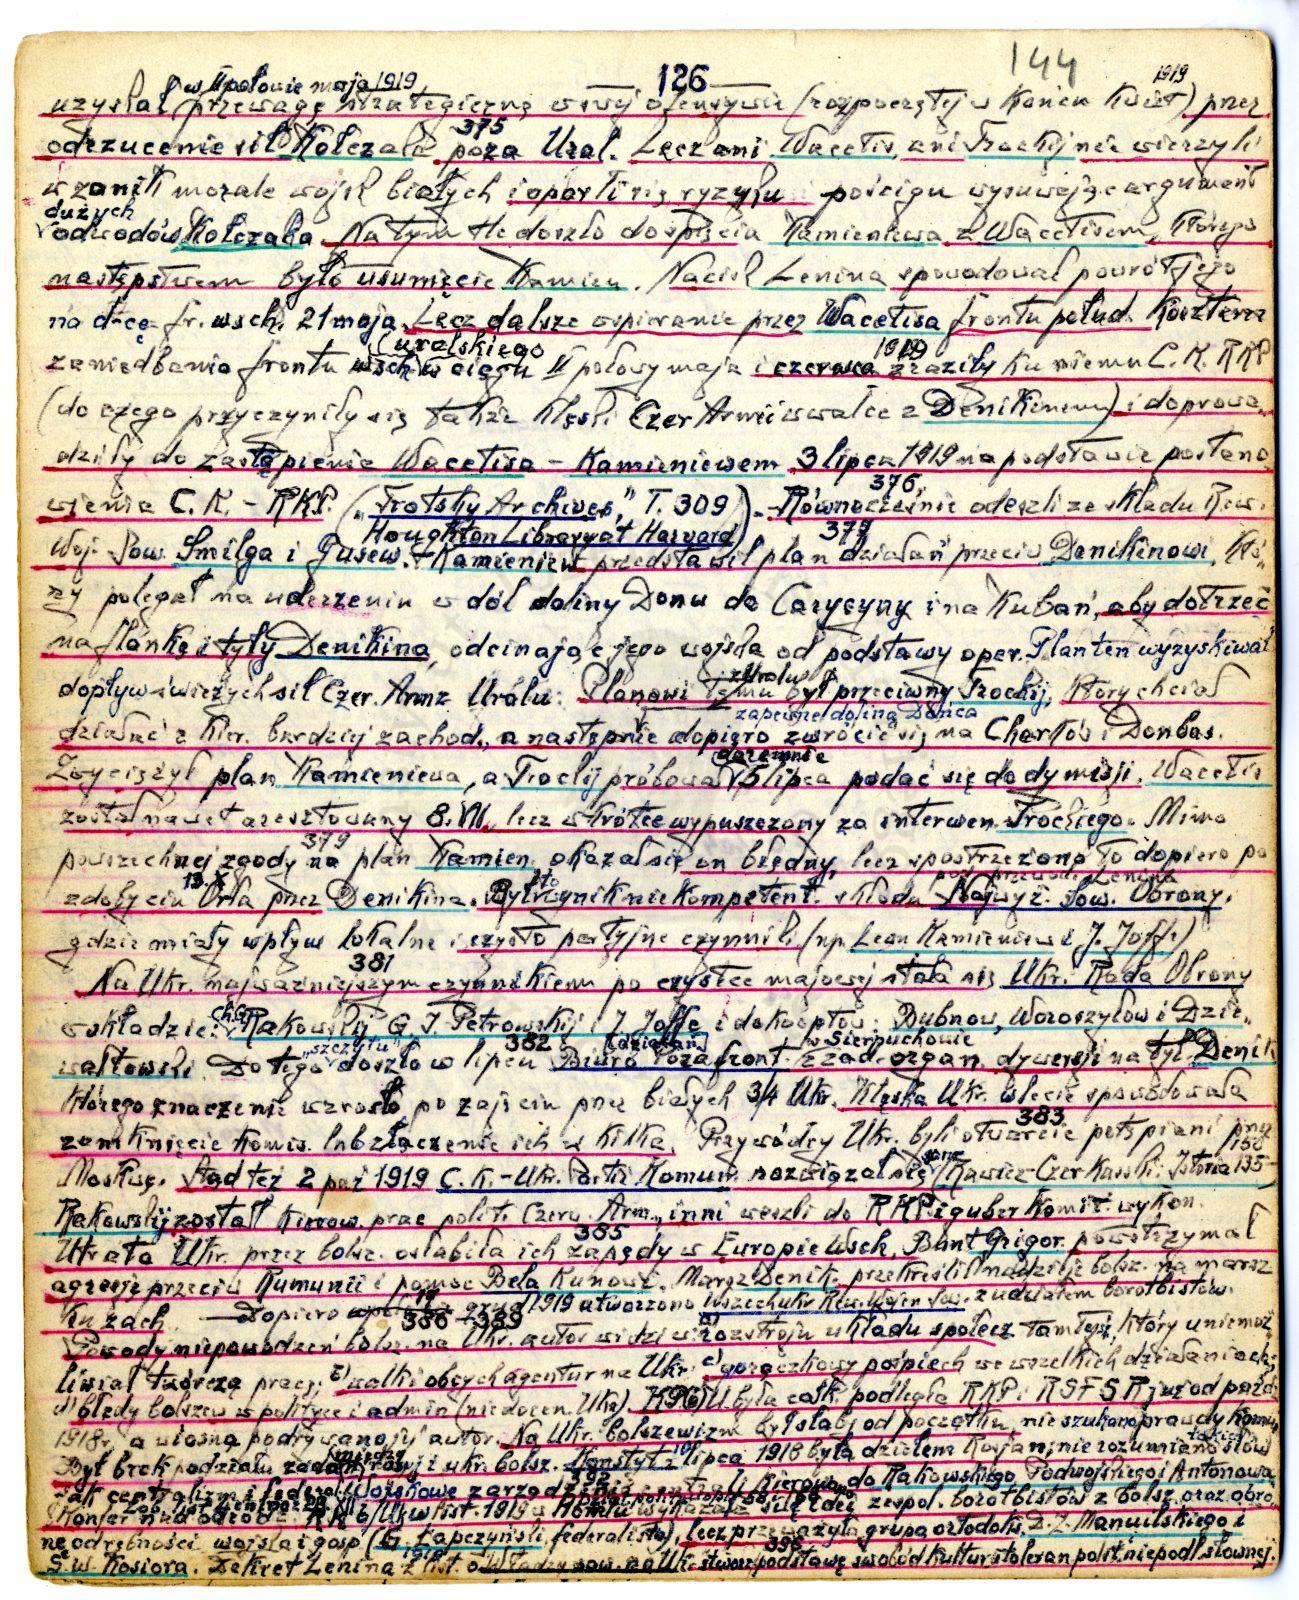 126
144
w II połowie maja 1919
1919
uzyskał przewagę strategiczną w swej ofensywie (rozpoczętej w końcu kwiet) przez
375
odrzucenie sił Kołczaka poza Ural. Lecz ani Wacetis, ani Trockij nie wierzyli
w zanik morale wojsk białych i oparli się ryzyku pościgu wysuwając argument
dużych
odwodów Kołczaka. Na tym tle doszło do spięcia Kamieniewa z Wacetisem, którego
następstwem było usunięcie Kamien. Nacisk Lenina spowodował powrót jego
na d-cę fr. wsch. 21 maja. Lecz dalsze wspieranie przez Wacetisa frontu połud. kosztem
uralskiego
1919
zaniedbania frontu wsch. w ciągu II połowy maja i czerwca zraziły ku niemu C.K. RKP
(do czego przyczyniły się także klęski Czer Armii w walce z Denikinem) i doprowa-
dziły do zastąpienia Wacetisa - Kamieniewem 3 lipca 1919 na podstawie postano
376,
wienia C.K. - RKP. ("Trotsky Archives", T. 309). - Równocześnie odeszli ze składu Rew.
Houghton Library at Harvard)
379
Woj. Sow. Smilga i Gusew. - Kamieniew przedstawił plan działań przeciw Denikinowi, któ-
ry polegał na uderzeniu w dół doliny Donu do Carycyny i na Kubań, aby dotrzeć
na flankę i tyły Denikina, odcinając jego wojska od podstawy oper. Plan ten wyzyskiwał
z Uralu
dopływ świeżych sił Czer. Arm z Uralu. Planowi temu był przeciwny Trockij, który chciał
zapewne doliną Dońca
działać z kier. bardziej zachod., a następnie dopiero zwrócić się na Charków i Donbas.
daremnie
Zwyciężył plan Kamieniewa, a Trockij próbował 5 lipca podać się do dymisji. Wacetis
został nawet aresztowany 8.VII., lecz wkrótce wypuszczony za interwen. Trockiego. Mimo
379
powszechnej zgody na plan Kamien. okazał się on błędny, lecz spostrzeżono to dopiero po
13.X
to
pod przewod. Lenina
zdobyciu Orła przez Denikina. Był wynik niekompetent. składu Najwyż. Sow. Obrony,
gdzie miały wpływ lokalne i czysto partyjne czynniki (np. Leon Kamieniew i J. Joffe)
381
Na Ukr. najważniejszym czynnikiem po czystce majowej stała się Ukr. Rada Obrony
Ch.G.
w składzie: Rakowskij G. I. Petrowskij i J. Joffe i dokooptow: Bubnow, Woroszyłow i Dzie-
"szczytu"
382
[działań]
w Sierpuchowie
wałtowski. Do tego doszło w lipcu Biuro Pozafront. z zad. organ. dywersji na tył. Denik
którego znaczenie wzrosło po zajęciu przez białych 3/4 Ukr. Klęska Ukr. w lecie spowodowała
383
zamknięcie Komis. lub złączenie ich w kilka. Przywódcy Ukr. byli otwarcie potępiani przez
150
Moskwę. Stąd też 2 paź 1919 C.K. - Ukr. Partii Komun. rozwiązał się (Rawicz-Czerkasski: Istoria 135-
Rakowskij został kierow. prac polit. Czerw. Arm., inni weszli do RKP i guber Komit. wykon.
385
Utrata Ukr. przez bolsz. osłabiła ich zapędy w Europie Wsch. Bunt Grigor. powstrzymał
agresję przeciw Rumunii i pomoc Bela Kunowi. Marsz Denik. przekreślił nadzieje bolsz. na marsz
19
ku zach — Dopiero grud 1919 utworzono Wszechukr Rew. Wojen Sow. z udziałem borotbistów.
386 - 389
Powody niepowodzeń bolsz. na Ukr. autor widzi w: a) rozstroju układu społecz tamtejs, który uniemoż-
liwiał twórczą pracę; b) walki obcych agentur na Ukr. c) gorączkowy pośpiech we wszelkich działaniach;
d) błędy bolszew w polityce i admin (niedocen. Ukr). KP(b)U była całk. podległa RKP i RSFSR już od paźdz
1918 r, a wiosną podrywano jej autor. Na Ukr. bolszewizm był słaby od początku, nie szukano prawdy komun
Był brak podziału zadań między ros. i ukr. bolsz. Konstyt z 10 lipca 1918 była dziełem Rosjan; nie rozumiano słów
392
jak centralizm i federal. Wojskowe zarządzenia kierowano do Rakowskiego, Podwojskiego i Antonowa
w Homlu wykazała się idej zespol. borotbistów z bolsz. oraz obro
nę odrębności wojska i gosp (G. Łapczyński, federalista), lecz przeważyła grupa ortodoks. D.Z. Manuilskiego i
396
S. W. Kosiora. Dekret Lenina z list. o Władzy sow. na Ukr. stworz podstawę swobód kultur i toleran polit. niepodl słownej.